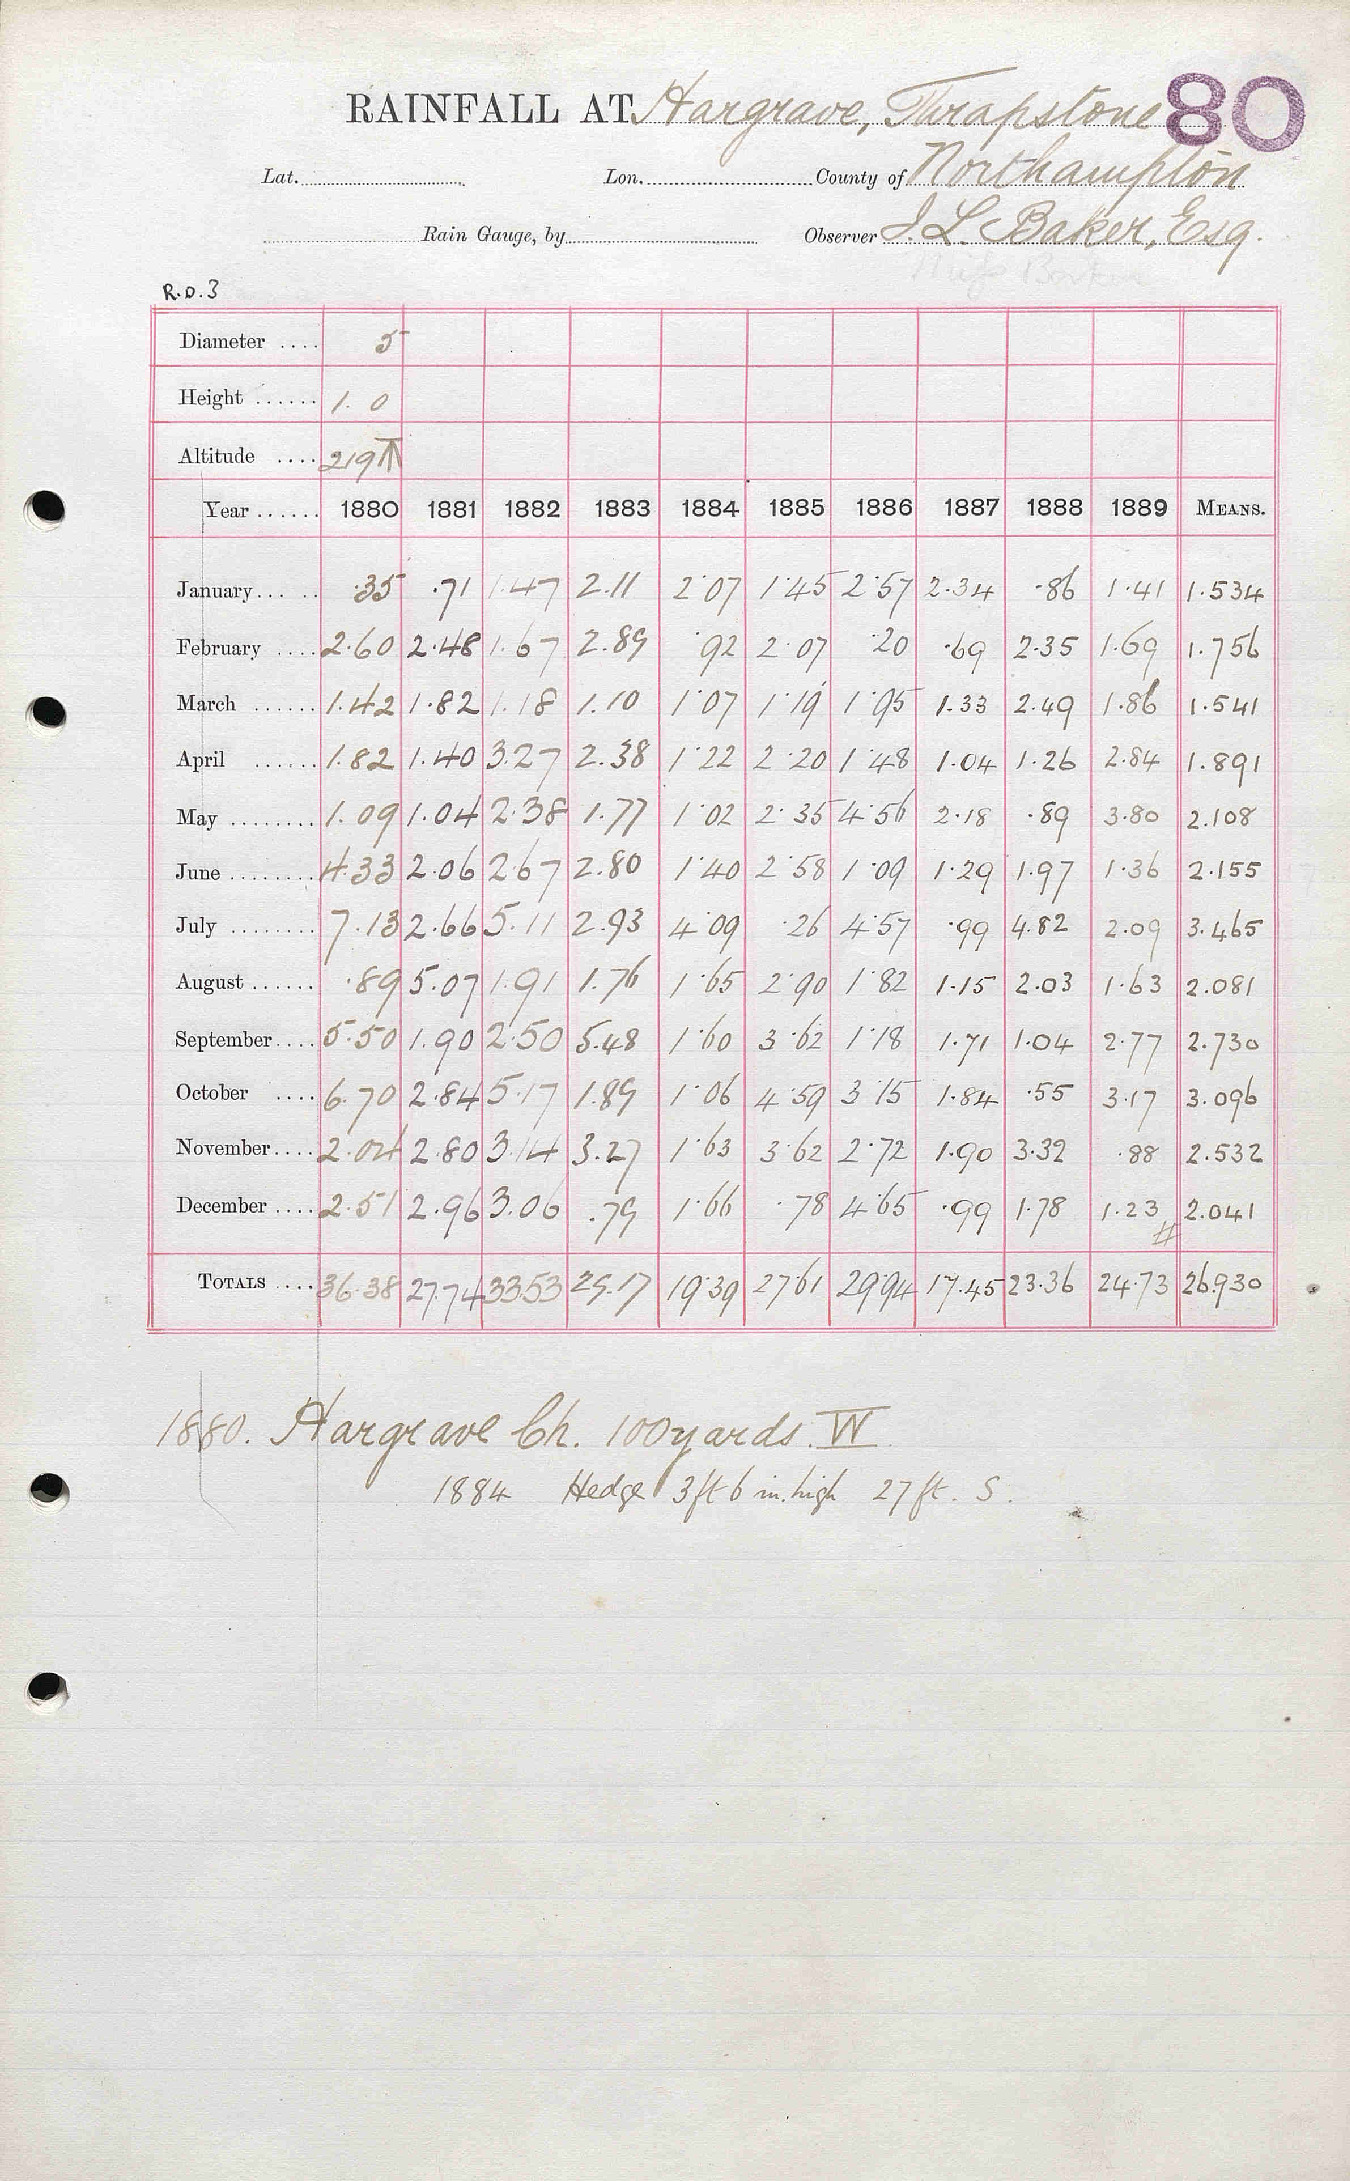 RAINFALL AT Hargrave, Thrapstone 80
Lat. Lon. County of Northampton
Rain Gauge, by Observer J. L. Baker, Esq.
Miss
R.D.3
Diameter .... 5
Height ...... 1. 0
Altitude .... 219
Year ...... 1880 1881 1882 1883 1884 1885 1886 1887 1888 1889 MEANS.
January ... .. .35 .71 1.47 2.11 2.07 1.45 2.57 2.34 .86 1.41 1.534
February .... 2.60 2.48 1.67 2.89 .92 2.07 .20 .69 2.35 1.69 1.756
March ...... 1.42 1.82 1.18 1.10 1.07 1.19 1.95 1.33 2.49 1.86 1.541
April ...... 1.82 1.40 3.27 2.38 1.22 2.20 1.48 1.04 1.26 2.84 1.891
May ........ 1.09 1.04 2.38 1.77 1.02 2.35 4.56 2.18 .89 3.80 2.108
June ........ 4.33 2.06 2.67 2.80 1.40 2.58 1.09 1.29 1.97 1.36 2.155
July ........ 7.13 2.66 5.11 2.93 4.09 .26 4.57 .99 4.82 2.09 3.465
August ...... .89 5.07 1.91 1.76 1.65 2.90 1.82 1.15 2.03 1.63 2.081
September .... 5.50 1.90 2.50 5.48 1.60 3.62 1.18 1.71 1.04 2.77 2.730
October .... 6.70 2.84 5.17 1.89 1.06 4.59 3.15 1.84 .55 3.17 3.096
November .... 2.04 2.80 3.14 3.27 1.63 3.62 2.72 1.90 3.32 .88 2.532
December .... 2.51 2.96 3.06 .79 1.66 .78 4.65 .99 1.78 1.23 2.041
#
TOTALS .... 36.38 27.74 33.53 29.17 19.39 27.61 29.94 17.45 23.36 24.73 26.930
1880. Hargrave Ch. 100 yards W
1884 Hedge 3 ft 6 in. high 27 ft. S.